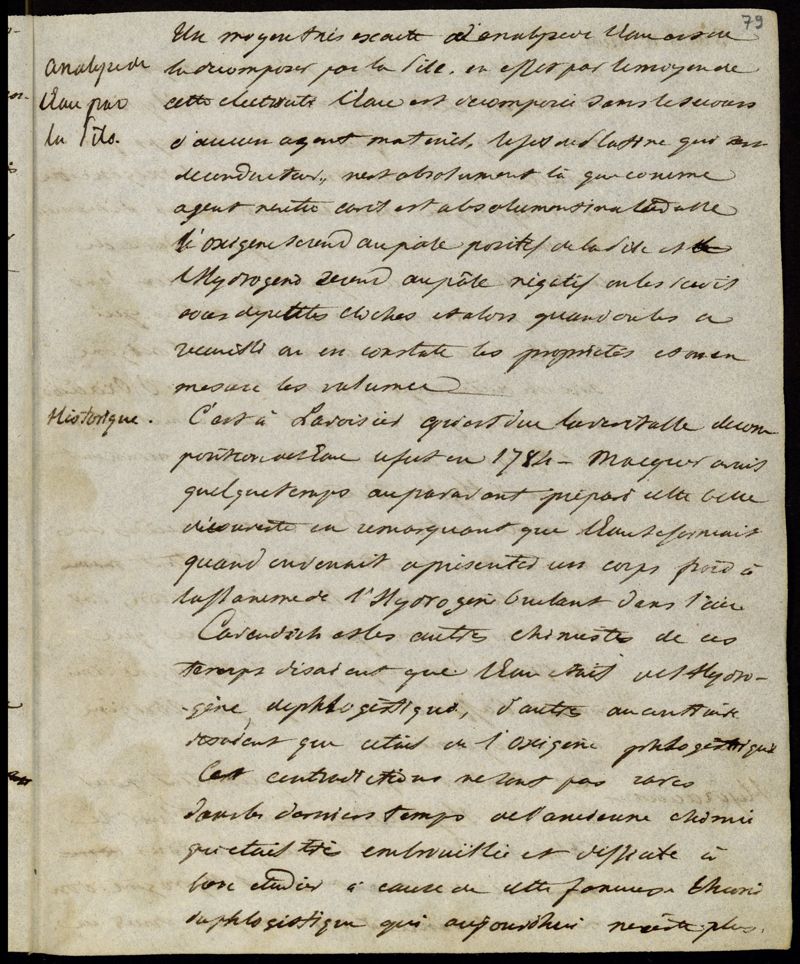 79
Analyse de
l'Eau par
la Pile.
Un moyen très exacte d'analyser l'Eau est de
la décomposer par la Pile. en effet par le moyen de
cette électricité l'Eau est décomposée sans le secours
d'aucun agent matériel, le fil de Platine qui sert
de conducteur, n'est absolument là que comme
agent neutre car il est absolument inaltérable
l'oxigène se rend au pôle positif de la Pile et
l'Hydrogène se rend au pôle négatif on les reçoit
sous de petites cloches et alors quand on les a
recueilli on en constate les propriétés et on en
mesure les volumes
Historique.
C'est à Lavoisier qu'est due la véritable décom
position de l'Eau ce fut en 1784 - Macquer avait
quelque temps auparavant préparé cette belle
découverte en remarquant que l'Eau se formait
quand on venait à présenter un corps froid à
la flamme de l'Hydrogène brulant dans l'air
Cavendish et les autres chimistes de ces
temps disaient que l'Eau était de l'Hydro-
-gène déphlogistiqué, d'autres au contraire
disaient que c'était de l'Oxigène phlogistiqué
Ces contradictions ne sont pas rares
dans les derniers temps de l'ancienne chimie
qui était très embrouillée et difficile à
bien étudier à cause de cette fameuse théorie
du phlogistique qui aujourd'hui n'existe plus.